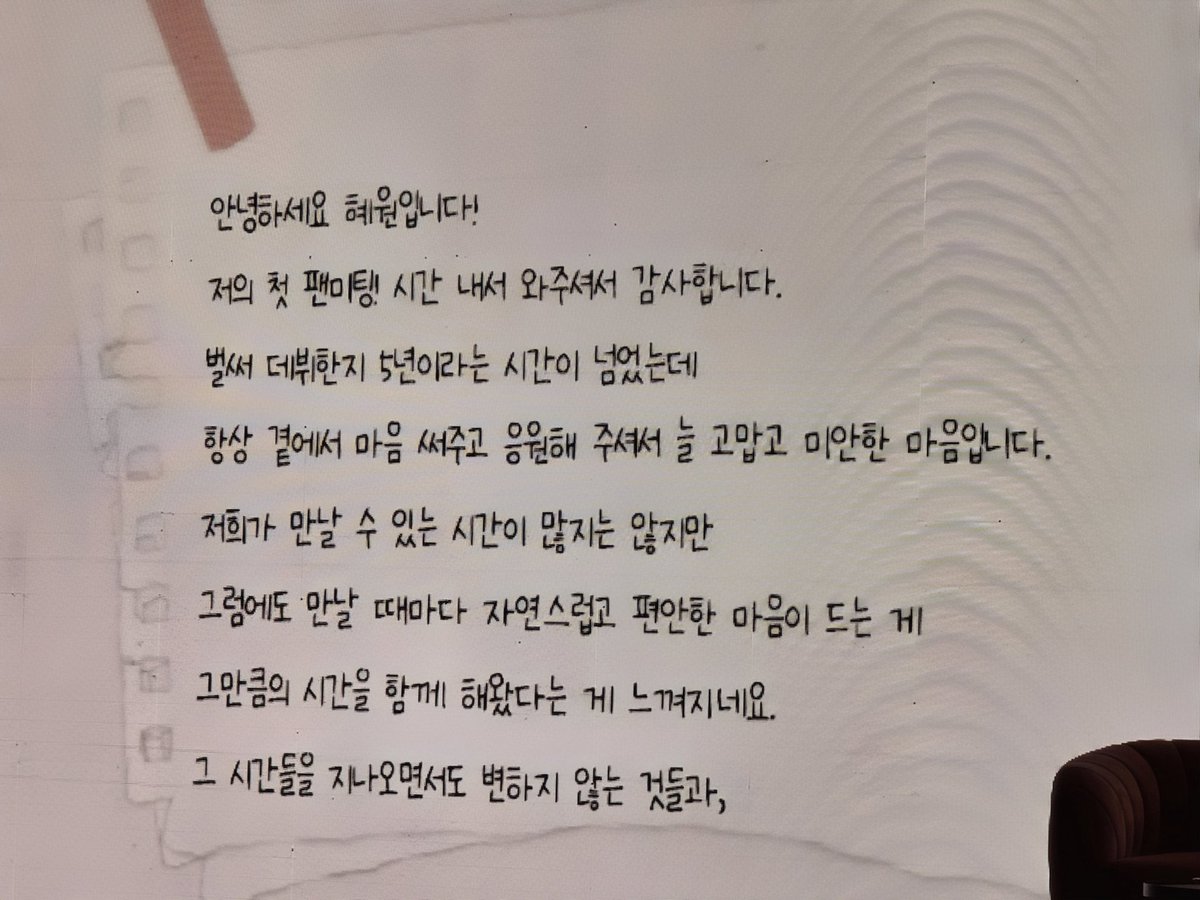 안녕하세요 혜원입니다!
저의 첫 팬미팅! 시간 내서 와주셔서 감사합니다.
벌써 데뷔한지 5년이라는 시간이 넘었는데
항상 곁에서 마음 써주고 응원해 주셔서 늘 고맙고 미안한 마음입니다.
저희가 만날 수 있는 시간이 많지는 않지만
그럼에도 만날 때마다 자연스럽고 편안한 마음이 드는 게
그만큼의 시간을 함께 해왔다는 게 느껴지네요.
그 시간들을 지나오면서도 변하지 않는 것들과,